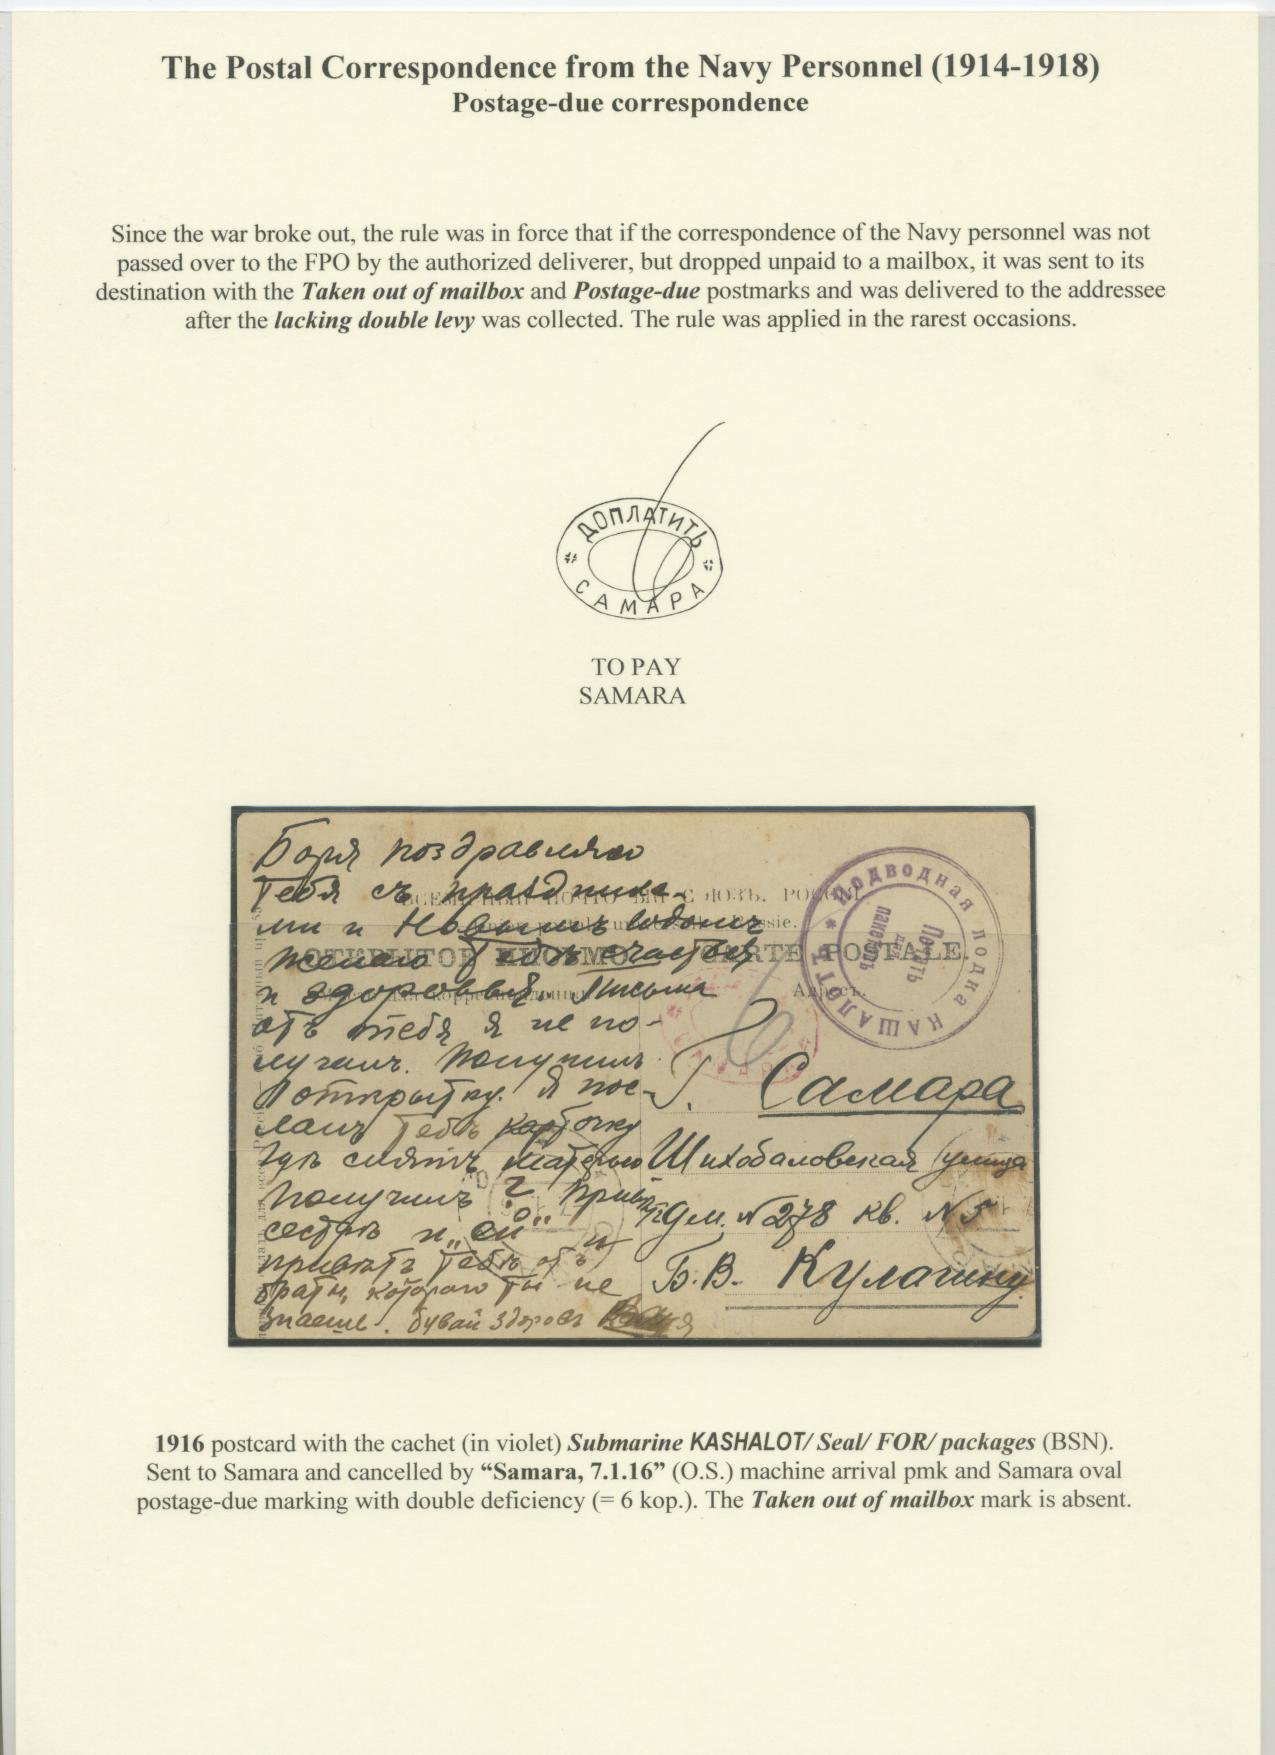 The Postal Correspondence from the Navy Personnel (1914-1918)
Postage-due correspondence
Since the war broke out, the rule was in force that if the correspondence of the Navy personnel was not
passed over to the FPO by the authorized deliverer, but dropped unpaid to a mailbox, it was sent to its
destination with the Taken out of mailbox and Postage-due postmarks and was delivered to the addressee
after the lacking double levy was collected. The rule was applied in the rarest occasions.
ДОПЛАТИТЬ
САМАРА
TO PAY
SAMARA
Боря поздравляю
тебя съ праздника-
ми и Новымъ годомъ
желаю Тебѣ счастья
и здоровья. Письма
отъ тебя я не по-
лучалъ. Получилъ
1 открытку. Я пос-
лалъ Тебѣ карточку
гдѣ снятъ
Получилъ ? Привѣтъ
сестрѣ и „ей“ и
привѣтъ Тебѣ отъ
брата, котораго ты не
знаешь. бывай здоровъ
ОТКРЫТОЕ ПИСЬМО CARTE POSTALE.
Адресъ.
* ПОДВОДНАЯ ЛОДКА КАШАЛОТЪ
Печать
для
пакетовъ
6
Г. Самара
Шихобаловская улица
дм. № 278 кв. № 5
Б. В. Кулагину
1916 postcard with the cachet (in violet) Submarine KASHALOT/ Seal/ FOR/ packages (BSN).
Sent to Samara and cancelled by “Samara, 7.1.16” (O.S.) machine arrival pmk and Samara oval
postage-due marking with double deficiency (= 6 kop.). The Taken out of mailbox mark is absent.